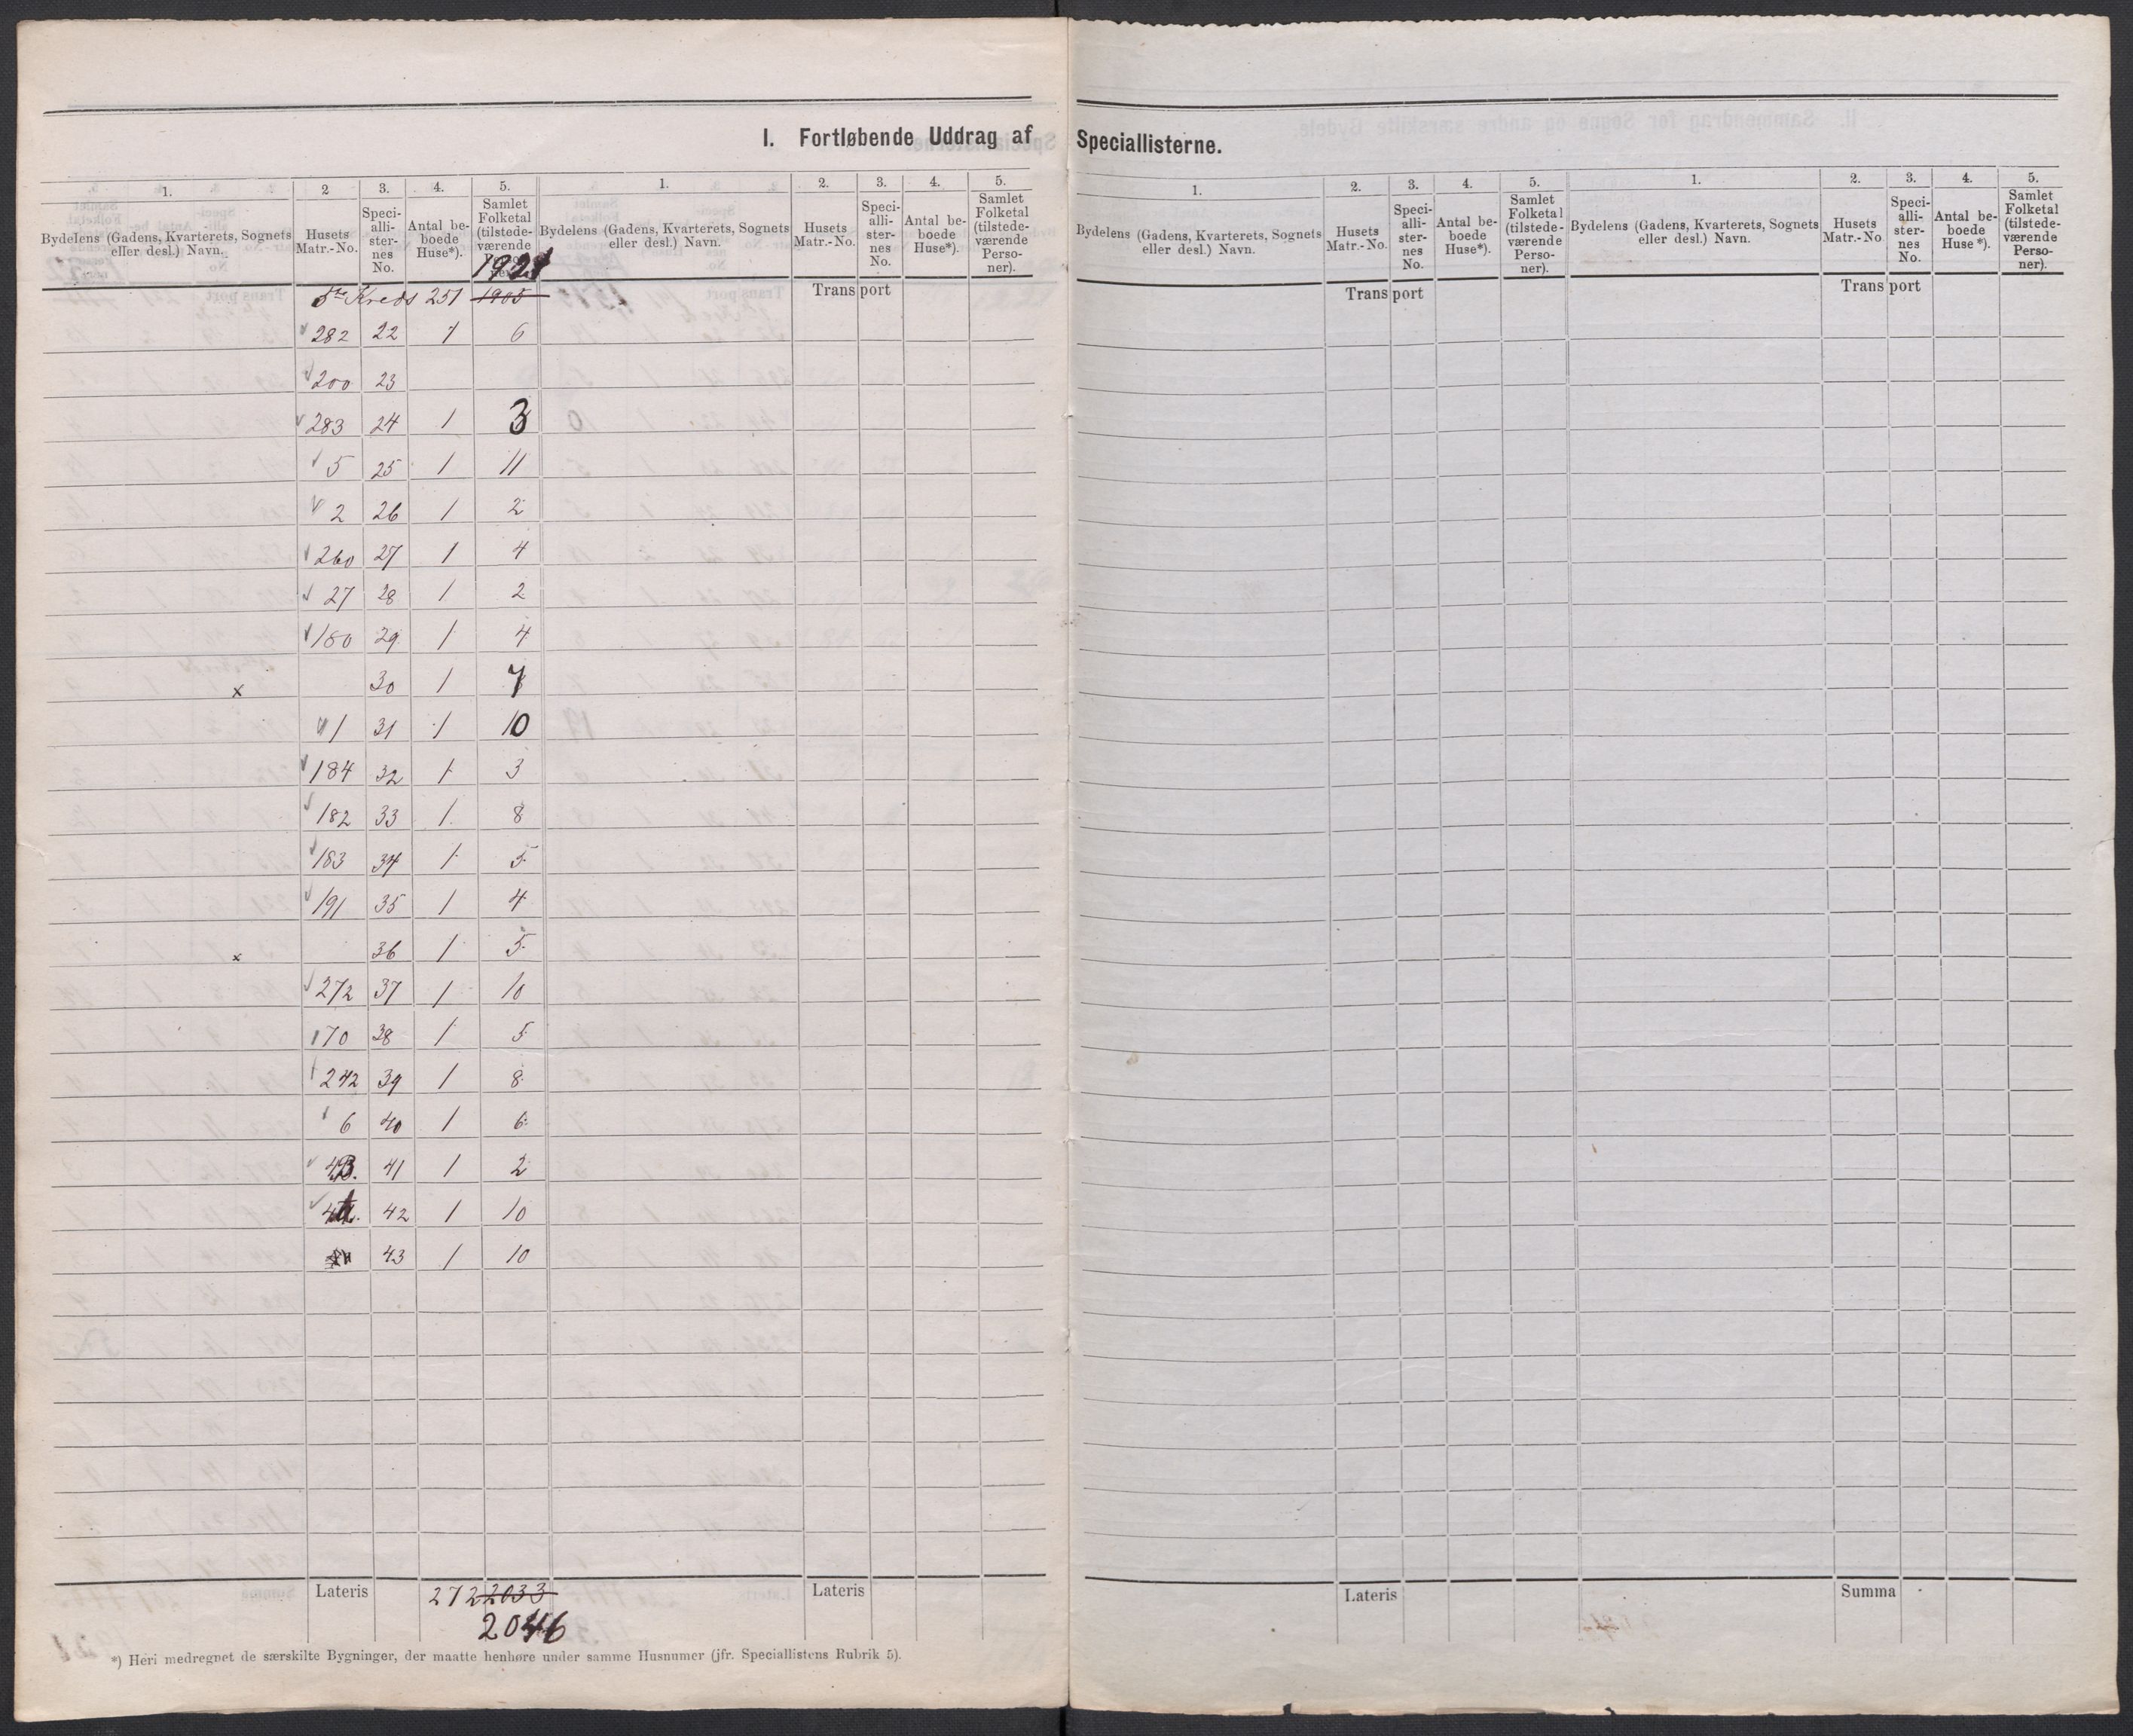 I. Fortløbende Uddrag af Speciallisterne.
1. 2 3. 4. 5. 1. 2. 3. 4. 5. 1. 2. 3. 4. 5. 1. 2. 3. 4. 5.
Bydelens (Gadens, Kvarterets, Sognets eller desl.) Navn. Husets Matr.-No. Speci-alli-ster-nes No. Antal be-boede Huse*). Samlet Folketal (tilstede-værende Perso-ner).
Bydelens (Gadens, Kvarterets, Sognets eller desl.) Navn. Husets Matr.-No. Speci-alli-ster-nes No. Antal be-boede Huse*). Samlet Folketal (tilstede-værende Perso-ner).
Bydelens (Gadens, Kvarterets, Sognets eller desl.) Navn. Husets Matr.-No. Speci-alli-ster-nes No. Antal be-boede Huse*). Samlet Folketal (tilstede-værende Perso-ner).
Bydelens (Gadens, Kvarterets, Sognets eller desl.) Navn. Husets Matr.-No. Speci-alli-ster-nes No. Antal be-boede Huse*). Samlet Folketal (tilstede-værende Perso-ner).
Kreds 251 1905
Transport Transport Transport
282 22 1 6
200 23
283 24 1 3
5 25 1 11
2 26 1 2
260 27 1 4
27 28 1 2
180 29 1 4
x 30 1 7
1 31 1 10
184 32 1 3
182 33 1 8
183 34 1 5
191 35 1 4
x 36 1 5
272 37 1 10
170 38 1 5
242 39 1 8
6 40 1 6
4B. 41 1 2
42 1 10
43 1 10
Lateris 272 2033 Lateris Lateris Summa
2046
*) Heri medregnet de særskilte Bygninger, der maatte henhøre under samme Husnumer (jfr. Speciallistens Rubrik 5).